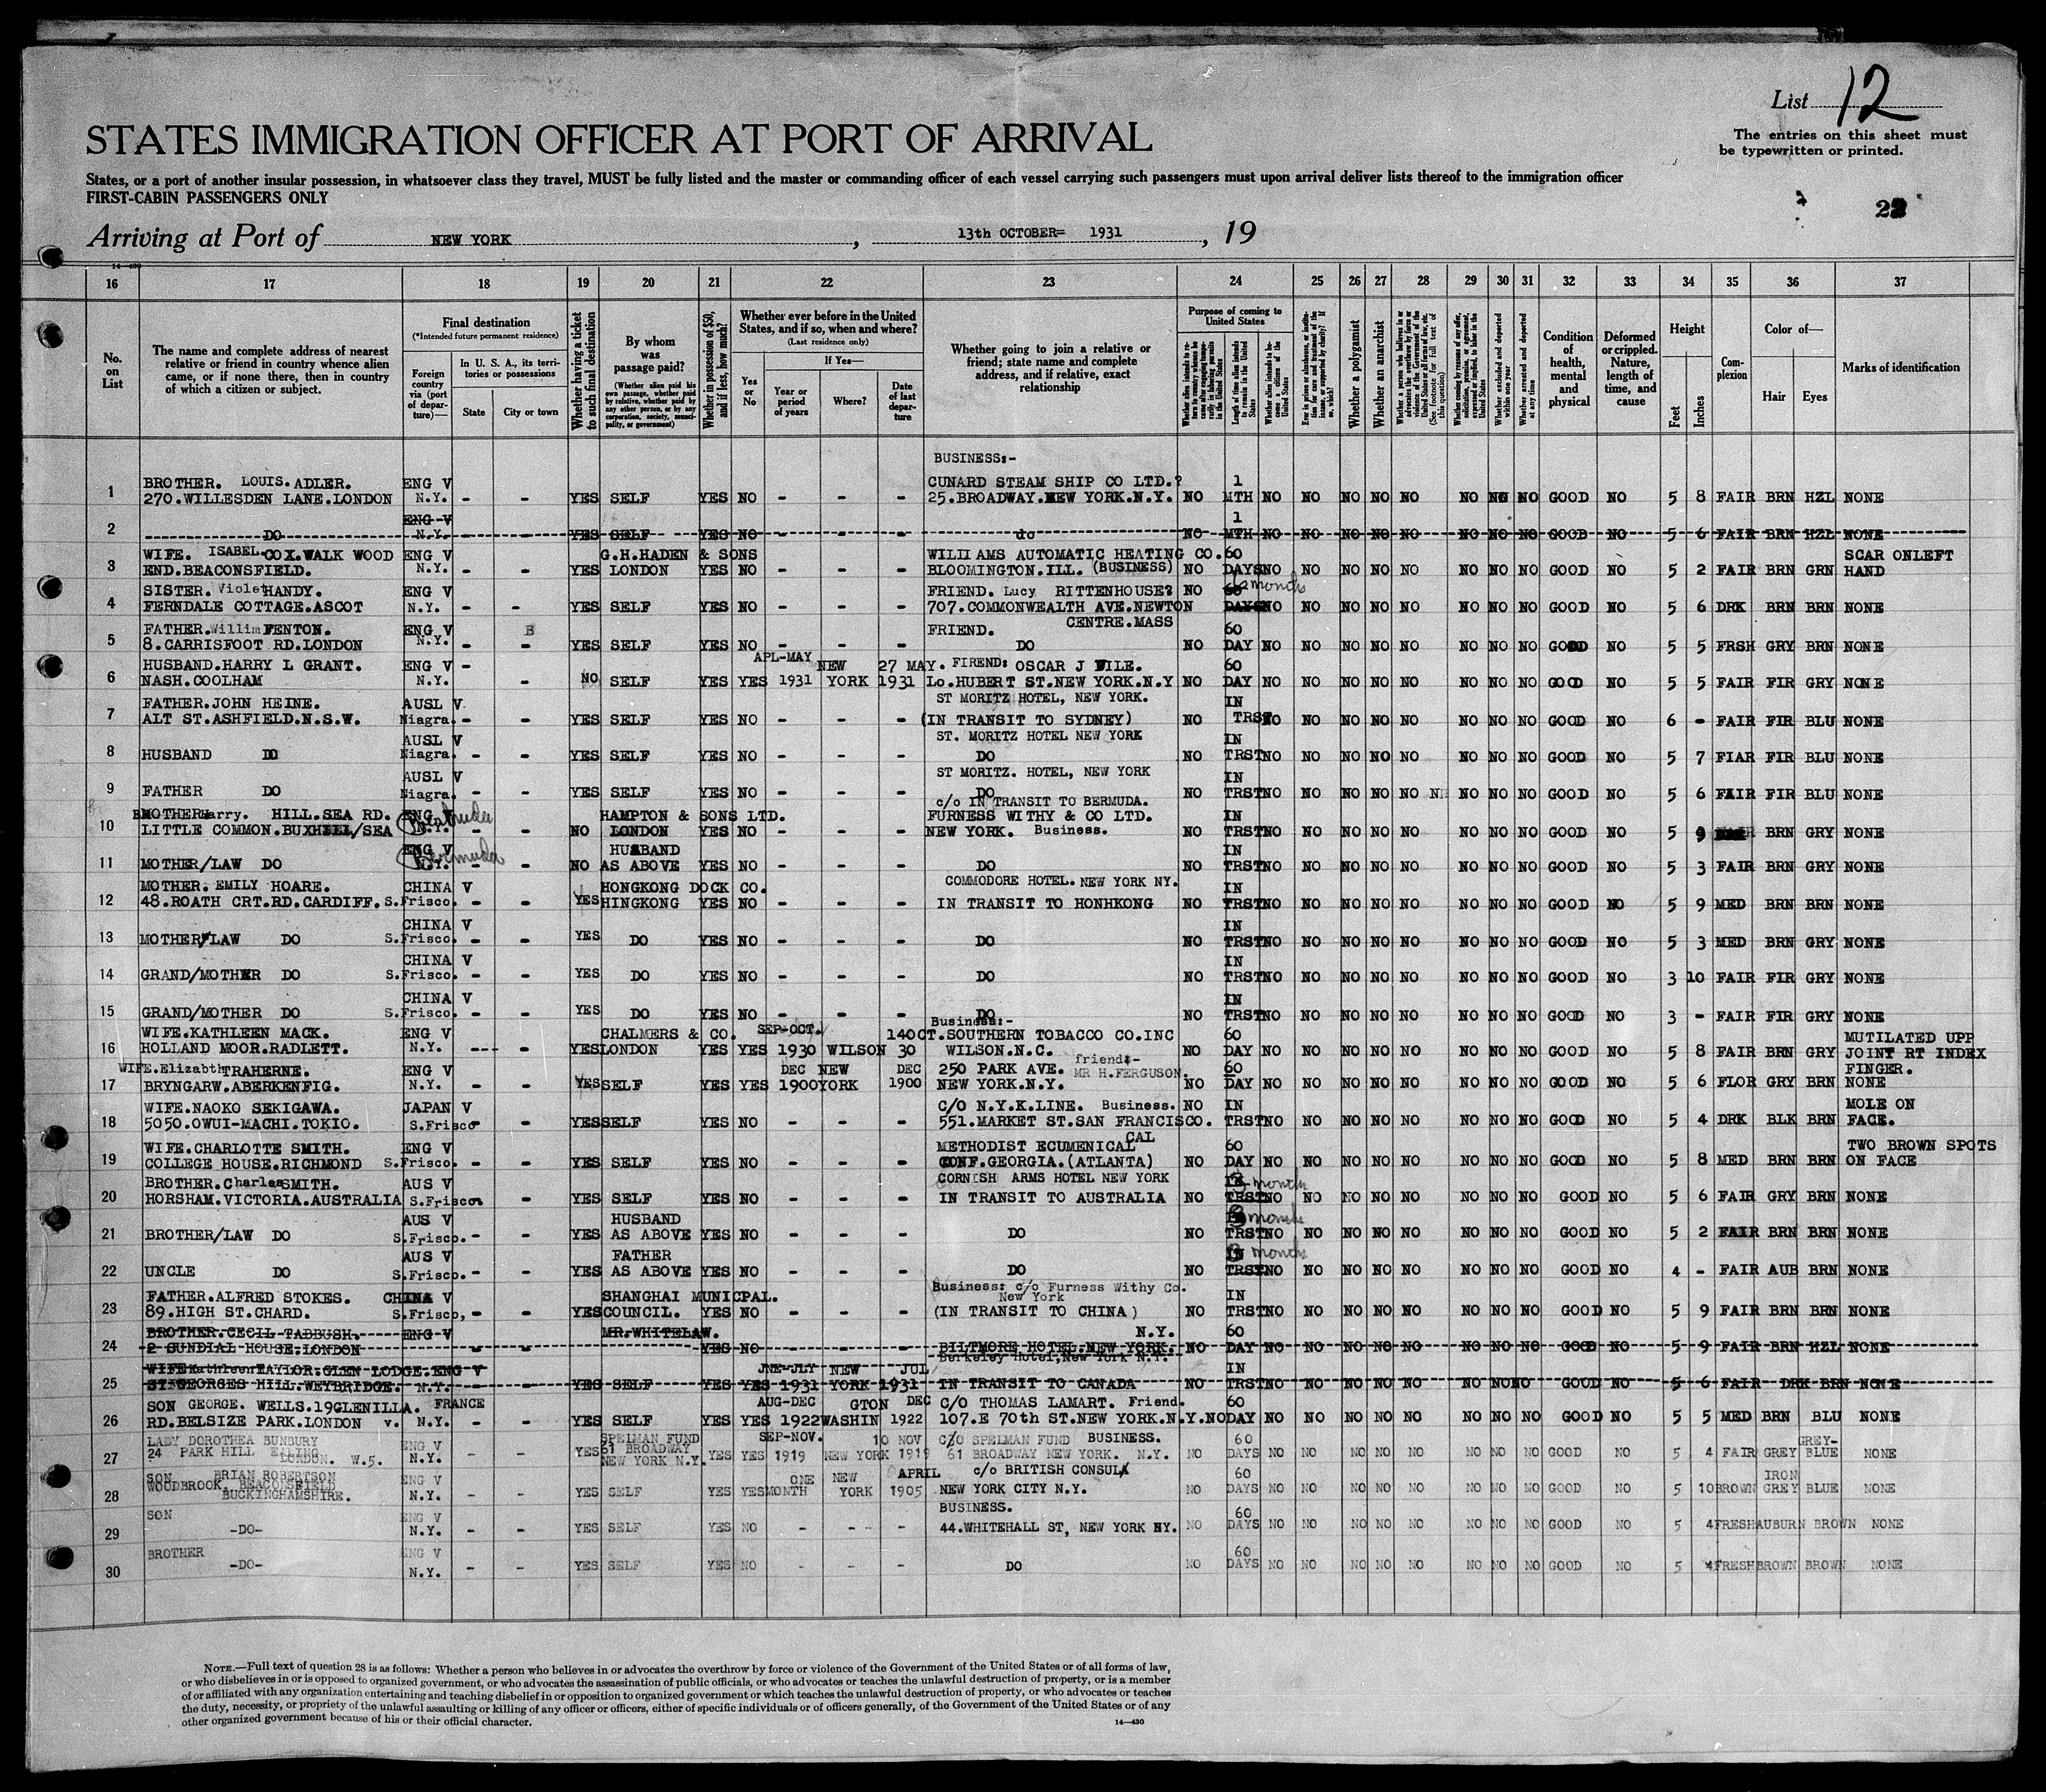 List 12
The entries on this sheet must
be typewritten or printed.
STATES IMMIGRATION OFFICER AT PORT OF ARRIVAL
States, or a port of another insular possession, in whatsoever class they travel, MUST be fully listed and the master or commanding officer of each vessel carrying such passengers must upon arrival deliver lists thereof to the immigration officer
FIRST-CABIN PASSENGERS ONLY
Arriving at Port of NEW YORK, 13th OCTOBER= 1931, 19
16 17 18 19 20 21 22 23 24 25 26 27 28 29 30 31 32 33 34 35 36 37
No. on List
The name and complete address of nearest relative or friend in country whence alien came, or if none there, then in country of which a citizen or subject.
Final destination
(*Intended future permanent residence)
Foreign country via (port of departure)—
In U. S. A., its territories or possessions
State
City or town
Whether having a ticket to such final destination
By whom was passage paid?
(Whether alien paid his own passage, whether paid by relative, whether paid by any other person, or by any corporation, society, municipality, or government)
Whether in possession of $50, and if less, how much?
Whether ever before in the United States, and if so, when and where?
(Last residence only)
Yes or No
If Yes—
Year or period of years
Where?
Date of last departure
Whether going to join a relative or friend; state name and complete address, and if relative, exact relationship
Purpose of coming to United States
Length of time alien intends to remain in the United States
Whether alien intends to become a citizen of the United States
Whether a polygamist
Whether an anarchist
Whether excluded and deported within one year
Whether arrested and deported at any time
Condition of health, mental and physical
Deformed or crippled. Nature, length of time, and cause
Height
Feet
Inches
Complexion
Color of—
Hair
Eyes
Marks of identification
BUSINESS:-
BROTHER. LOUIS. ADLER. ENG V CUNARD STEAM SHIP CO LTD.? 1
1 270.WILLESDEN LANE.LONDON N.Y. - - YES SELF YES NO - - - 25.BROADWAY.NEW YORK.N.Y. NO MTH NO NO NO NO NO NO NO NO GOOD NO 5 8 FAIR BRN HZL NONE
ENG V 1
2 DO N.Y. YES SELF YES NO - - - do NO MTH NO NO NO NO NO NO NO NO GOOD NO 5 6 FAIR BRN HZL NONE
WIFE. ISABEL COX.WALK WOOD ENG V G.H.HADEN & SONS WILLIAMS AUTOMATIC HEATING CO. 60 SCAR ONLEFT
3 END.BEACONSFIELD. N.Y. - - YES LONDON YES NO - - - BLOOMINGTON.ILL. (BUSINESS) NO DAYS NO NO NO NO NO NO NO NO GOOD NO 5 2 FAIR BRN GRN HAND
SISTER. Violet HANDY. ENG V FRIEND. Lucy RITTENHOUSE? NO 60 months
4 FERNDALE COTTAGE.ASCOT N.Y. - - YES SELF YES NO - - - 707.COMMONWEALTH AVE.NEWTON DAYS NO NO NO NO NO NO NO NO GOOD NO 5 6 DRK BRN BRN NONE
CENTRE.MASS
FATHER.Willim FENTON. ENG V B FRIEND. 60
5 8.CARRISFOOT RD.LONDON N.Y. - - YES SELF YES NO - - - DO NO DAY NO NO NO NO NO NO NO NO GOOD NO 5 5 FRSH GRY BRN NONE
HUSBAND.HARRY L GRANT. ENG V - APL-MAY NEW 27 MAY. FIREND: OSCAR J WILE. 60
6 NASH.COOLHAM N.Y. - NO SELF YES YES 1931 YORK 1931 Lo.HUBERT ST.NEW YORK.N.Y NO DAY NO NO NO NO NO NO NO NO GOOD NO 5 5 FAIR FIR GRY NONE
FATHER.JOHN HEINE. AUSL V ST MORITZ HOTEL, NEW YORK. IN
7 ALT ST.ASHFIELD.N.S.W. Niagra. - - YES SELF YES NO - - - (IN TRANSIT TO SYDNEY) NO TRST NO NO NO NO NO NO NO NO GOOD NO 6 - FAIR FIR BLU NONE
AUSL V ST. MORITZ HOTEL NEW YORK IN
8 HUSBAND DO Niagra. - - YES SELF YES NO - - - DO NO TRST NO NO NO NO NO NO NO NO GOOD NO 5 7 FIAR FIR BLU NONE
AUSL V ST MORITZ. HOTEL, NEW YORK IN
9 FATHER DO Niagra. - - YES SELF YES NO - - - DO NO TRST NO NO NO NO NO NO NO NO GOOD NO 5 6 FAIR FIR BLU NONE
c/o IN TRANSIT TO BERMUDA.
MOTHER Harry. HILL.SEA RD. ENG V Bermuda HAMPTON & SONS LTD. FURNESS WITHY & CO LTD. IN
10 LITTLE COMMON.BUXHILL/SEA N.Y. - - NO LONDON YES NO - - - NEW YORK. Business. NO TRST NO NO NO NO NO NO NO NO GOOD NO 5 9 FAIR BRN GRY NONE
ENG V Bermuda HUSBAND IN
11 MOTHER/LAW DO N.Y. - - NO AS ABOVE YES NO - - - DO NO TRST NO NO NO NO NO NO NO NO GOOD NO 5 3 FAIR BRN GRY NONE
MOTHER. EMILY HOARE. CHINA V HONGKONG DOCK CO. COMMODORE HOTEL. NEW YORK NY. IN
12 48.ROATH CRT.RD.CARDIFF. S.Frisco. - - YES HINGKONG YES NO - - - IN TRANSIT TO HONHKONG NO TRST NO NO NO NO NO NO NO NO GOOD NO 5 9 MED BRN BRN NONE
CHINA V IN
13 MOTHER/LAW DO S.Frisco. - - YES DO YES NO - - - DO NO TRST NO NO NO NO NO NO NO NO GOOD NO 5 3 MED BRN GRY NONE
CHINA V IN
14 GRAND/MOTHER DO S.Frisco. - - YES DO YES NO - - - DO NO TRST NO NO NO NO NO NO NO NO GOOD NO 3 10 FAIR FIR GRY NONE
CHINA V IN
15 GRAND/MOTHER DO S.Frisco. - - YES DO YES NO - - - DO NO TRST NO NO NO NO NO NO NO NO GOOD NO 3 - FAIR FIR GRY NONE
Business:-
WIFE.KATHLEEN MACK. ENG V CHALMERS & CO. SEP-OCT. 14OCT.SOUTHERN TOBACCO CO.INC 60 MUTILATED UPP
16 HOLLAND MOOR.RADLETT. N.Y. --- - YES LONDON YES YES 1930 WILSON 30 WILSON.N.C. NO DAY NO NO NO NO NO NO NO NO GOOD NO 5 8 FAIR BRN GRY JOINT RT INDEX
WIFE.Elizabth TRAHERNE. ENG V DEC NEW DEC 250 PARK AVE. friend:- MR H.FERGUSON. 60 FINGER.
17 BRYNGARW.ABERKENFIG. N.Y. - - YES SELF YES YES 1900 YORK 1900 NEW YORK.N.Y. NO DAY NO NO NO NO NO NO NO NO GOOD NO 5 6 FLOR GRY BRN NONE
WIFE.NAOKO SEKIGAWA. JAPAN V C/O N.Y.K.LINE. Business. NO IN MOLE ON
18 5050.OWUI-MACHI.TOKIO. S.Frisco - - YES SELF YES NO - - - 551.MARKET ST.SAN FRANCISCO. TRST NO NO NO NO NO NO NO NO GOOD NO 5 4 DRK BLK BRN FACE.
CAL
WIFE.CHARLOTTE SMITH. ENG V METHODIST ECUMENICAL 60 TWO BROWN SPOTS
19 COLLEGE HOUSE.RICHMOND S.Frisco. - - YES SELF YES NO - - - CONF.GEORGIA.(ATLANTA) NO DAY NO NO NO NO NO NO NO NO GOOD NO 5 8 MED BRN BRN ON FACE
BROTHER.Charles SMITH. AUS V CORNISH ARMS HOTEL NEW YORK IN 3 month
20 HORSHAM.VICTORIA.AUSTRALIA S.Frisco. - YES SELF YES NO - - - IN TRANSIT TO AUSTRALIA NO TRST NO NO NO NO NO NO NO NO GOOD NO 5 6 FAIR GRY BRN NONE
AUS V HUSBAND 3 month
21 BROTHER/LAW DO S.Frisco. - - YES AS ABOVE YES NO - - - DO NO TRST NO NO NO NO NO NO NO NO GOOD NO 5 2 FAIR BRN BRN NONE
AUS V FATHER IN 3 month
22 UNCLE DO S.Frisco. - - YES AS ABOVE YES NO - - - DO NO TRST NO NO NO NO NO NO NO NO GOOD NO 4 - FAIR AUB BRN NONE
Business: c/o Furness Withy Co.
New York
FATHER.ALFRED STOKES. CHINA V SHANGHAI MUNICPAL. IN
23 89.HIGH ST.CHARD. S.Frisco, - - YES COUNCIL. YES NO - - - (IN TRANSIT TO CHINA) NO TRST NO NO NO NO NO NO NO NO GOOD NO 5 9 FAIR BRN BRN NONE
BROTHER.CECIL TADBUSH. ENG V MR.WHITELAW. N.Y. 60
24 2 SUNDIAL HOUSE.LONDON YES NO BILTMORE HOTEL.NEW YORK. NO DAY NO NO NO NO NO NO NO NO GOOD NO 5 9 FAIR BRN HZL NONE
Berkeley Hotel,New York N.Y.
WIFE Kathleen TAYLOR.GLEN LODGE. ENG V JNE-JLY NEW JUL IN
25 ST.GEORGES HILL.WEYBRIDGE. N.Y. - - YES SELF YES YES 1931 YORK 1931 IN TRANSIT TO CANADA NO TRST NO NO NO NO NO NO NO NO GOOD NO 5 6 FAIR DRK BRN NONE
SON GEORGE. WELLS.19GLENILLA. FRANCE AUG-DEC GTON DEC C/O THOMAS LAMART. Friend. 60
26 RD.BELSIZE PARK.LONDON v. N.Y. - - YES SELF YES YES 1922 WASHIN 1922 107.E 70th ST.NEW YORK.N.Y.NO DAY NO NO NO NO NO NO NO NO GOOD NO 5 5 MED BRN BLU NONE
LADY DOROTHEA BUNBURY ENG V SPELMAN FUND SEP-NOV. 10 NOV C/O SPELMAN FUND BUSINESS. 60 GREY-
27 24 PARK HILL EALING LONDON. W.5. N.Y. - - YES 61 BROADWAY NEW YORK N.Y. YES YES 1919 NEW YORK 1919 61 BROADWAY NEW YORK. N.Y. NO DAYS NO NO NO NO NO NO NO NO GOOD NO 5 4 FAIR GREY BLUE NONE
SON BRIAN ROBERTSON ENG V ONE NEW APRIL c/o BRITISH CONSUL 60 IRON
28 WOODBROOK, BEACONSFIELD BUCKINGHAMSHIRE. N.Y. - - YES SELF YES YES MONTH YORK 1905 NEW YORK CITY N.Y. NO DAYS NO NO NO NO NO NO NO NO GOOD NO 5 10 BROWN GREY BLUE NONE
SON ENG V BUSINESS. 60
29 -DO- N.Y. - - YES SELF YES NO - - - 44.WHITEHALL ST, NEW YORK NY. NO DAYS NO NO NO NO NO NO NO NO GOOD NO 5 4 FRESH AUBURN BROWN NONE
BROTHER ENG V 60
30 -DO- N.Y. - - YES SELF YES NO - - - DO NO DAYS NO NO NO NO NO NO NO NO GOOD NO 5 4 FRESH BROWN BROWN NONE
NOTE.—Full text of question 28 is as follows: Whether a person who believes in or advocates the overthrow by force or violence of the Government of the United States or of all forms of law,
or who disbelieves in or is opposed to organized government, or who advocates the assassination of public officials, or who advocates or teaches the unlawful destruction of property, or is a member
of or affiliated with any organization entertaining and teaching disbelief in or opposition to organized government or which teaches the unlawful destruction of property, or who advocates or teaches
the duty, necessity, or propriety of the unlawful assaulting or killing of any officer or officers, either of specific individuals or of officers generally, of the Government of the United States or of any
other organized government because of his or their official character.
14—430